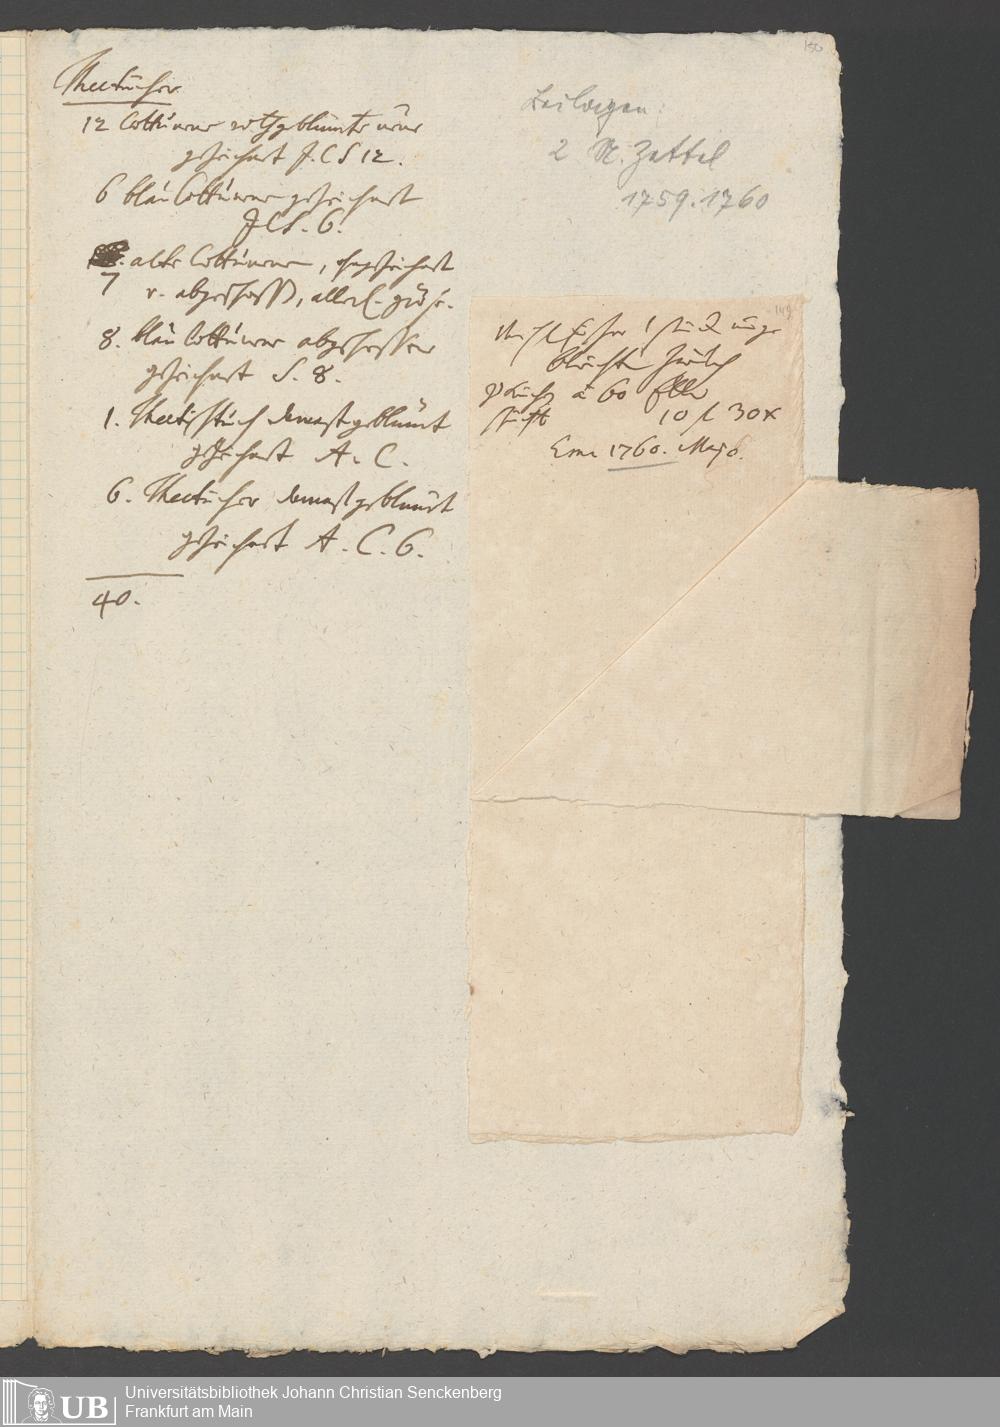 150
Theetücher.
12 Cottunene rothgeblümte neue
gezeichnet J. C S 12.
6 blau Cottunene gezeichnet
J C S. 6.
7 alte Cottunene, ohngezeichnet
v. abgeschossen, allerl. größe.
8. blau Cottunene abgeschossene
gezeichnet S. 8.
1. Theetischtuch damastgeblümt
gezeichnet A. C.
6. Theetücher damastgeblümt
gezeichnet A. C. 6.
40.
Beilagen:
2 N. Zettel
1759. 1760
149
1 stück unge
bleicht
à 60 Elle
10 f 30 x
Eme 1760. Maj 6.
UB
Universitätsbibliothek Johann Christian Senckenberg
Frankfurt am Main